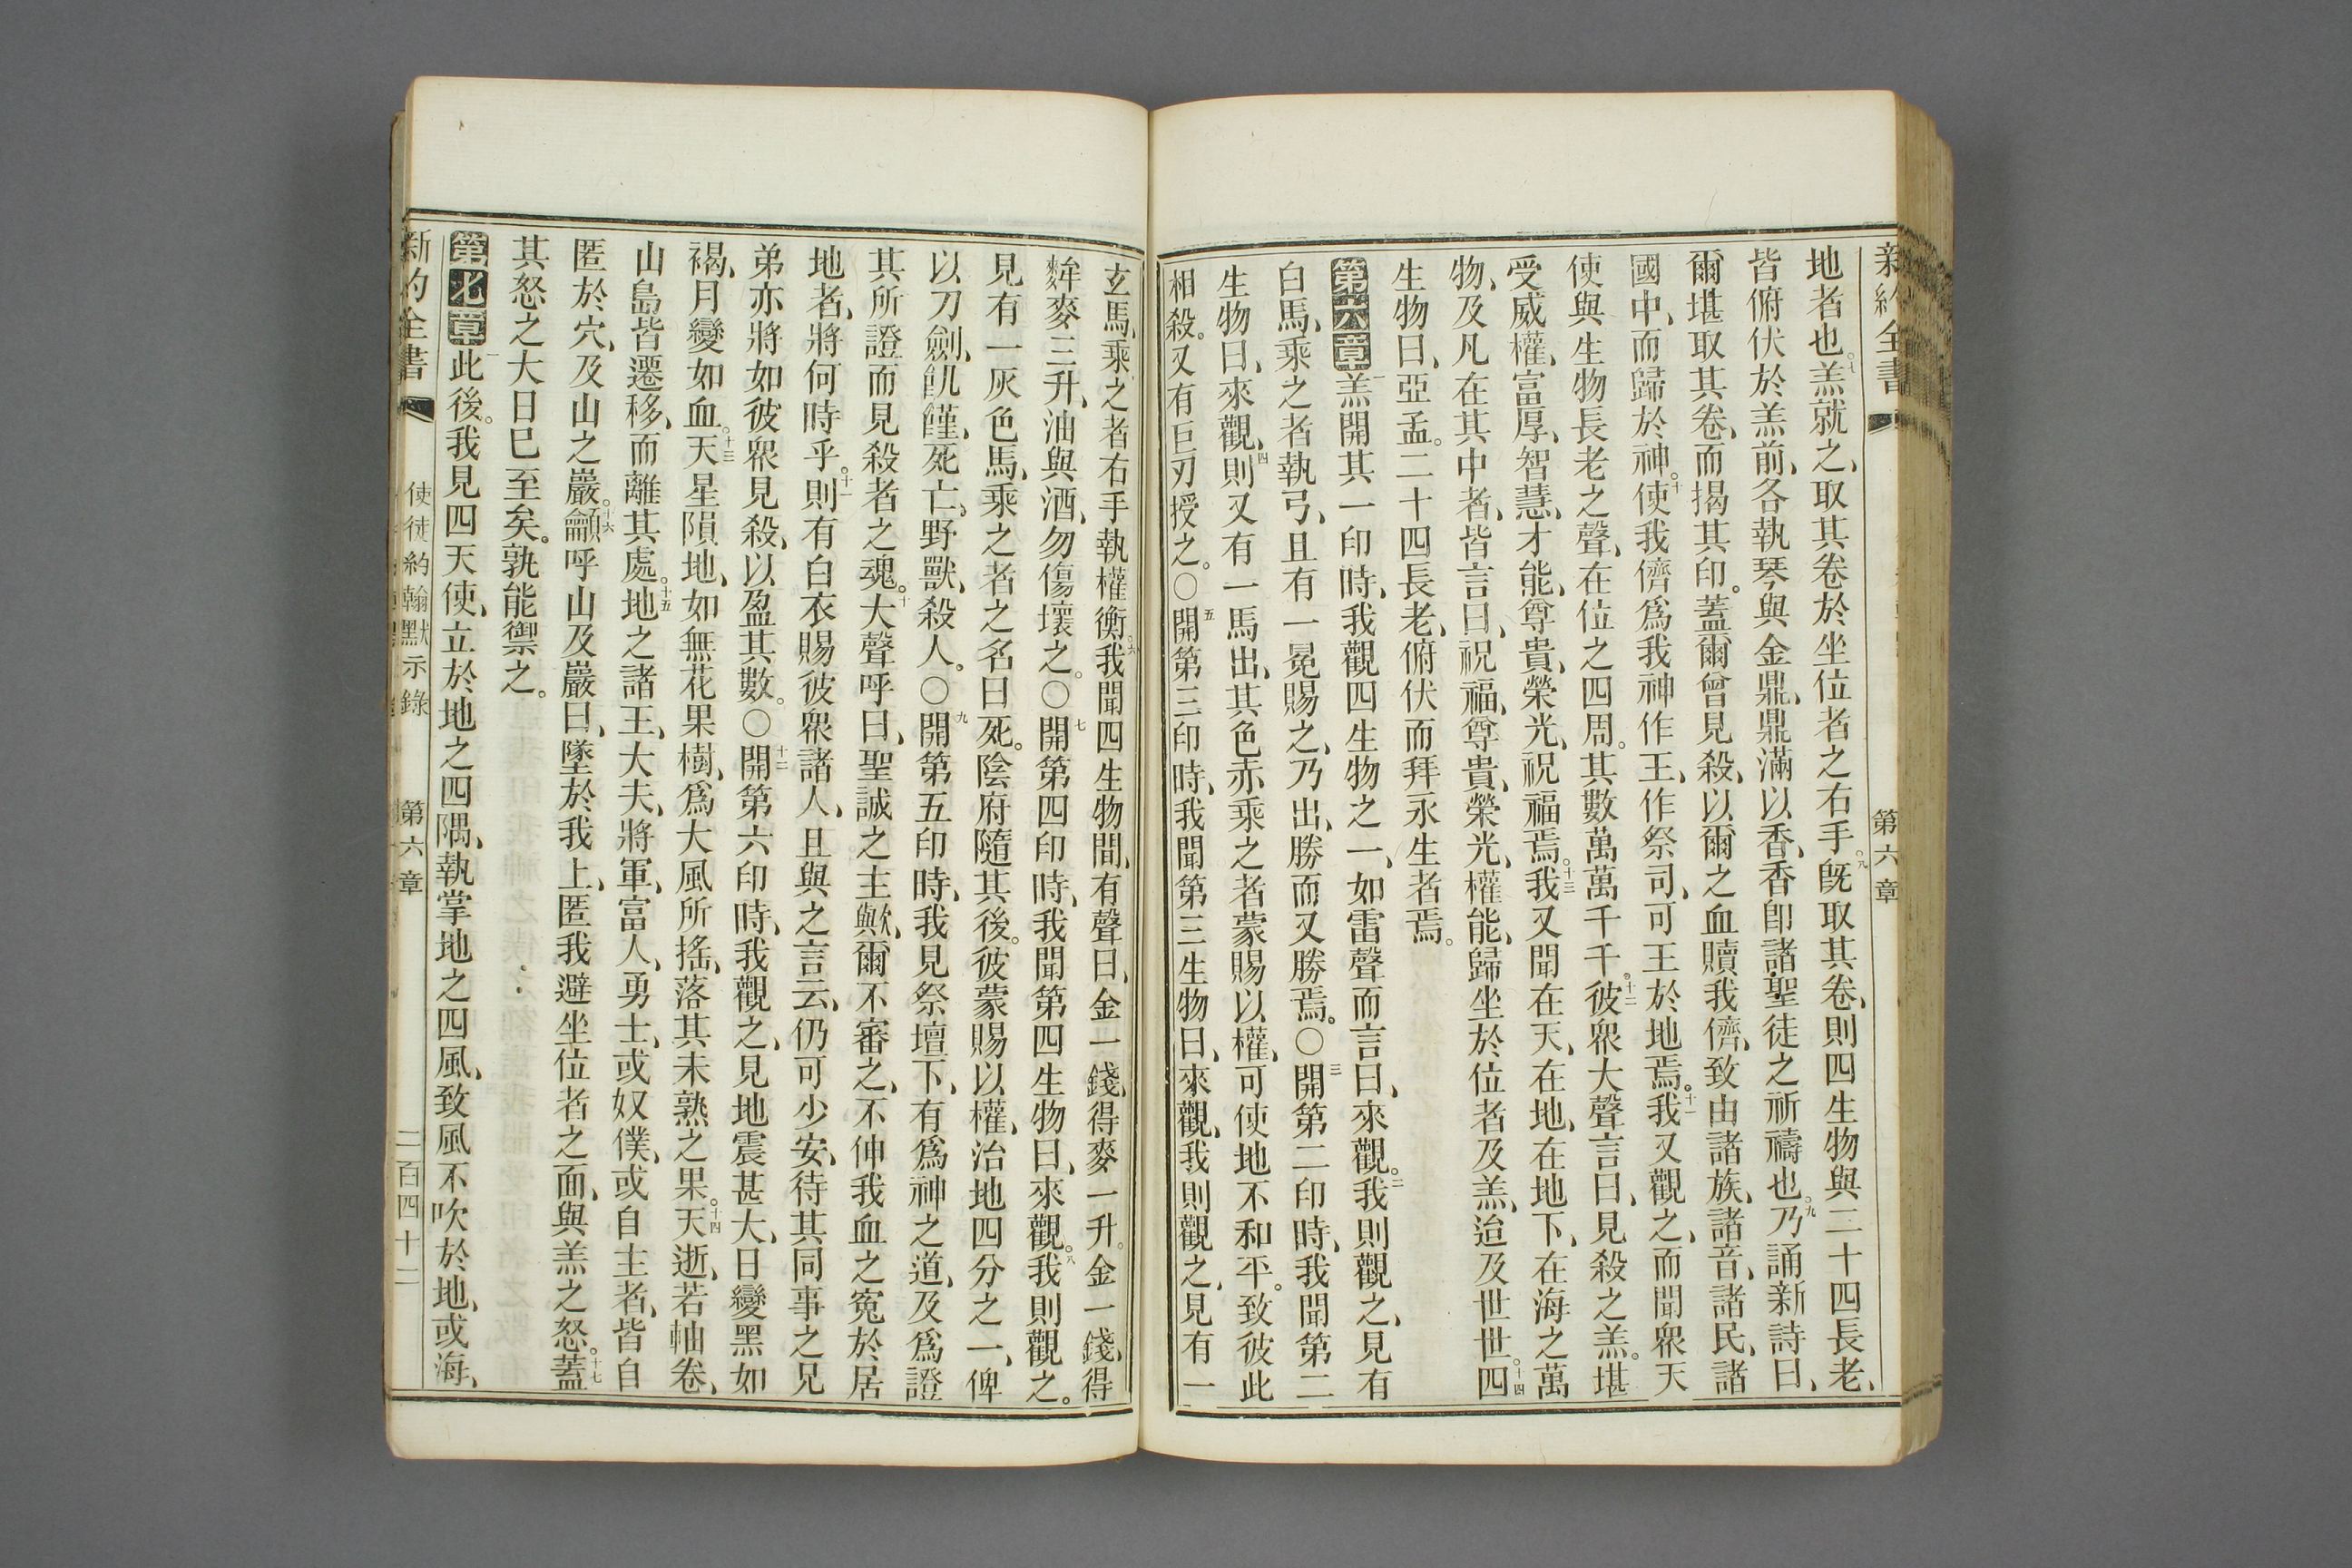 新約全書
第六章
地者也。七羔就之、取其卷於坐位者之右手。八旣取其卷、則四生物與二十四長老、
皆俯伏於羔前、各執琴、與金鼎、鼎滿以香、香卽諸聖徒之祈禱也。九乃誦新詩曰、
爾堪取其卷、而揭其印。蓋爾曾見殺、以爾之血贖我儕、致由諸族、諸音、諸民、諸
國中、而歸於神。十使我儕爲我神作王、作祭司、可王於地焉。十一我又觀之、而聞衆天
使與生物長老之聲、在位之四周。其數萬萬千千。十二彼衆大聲言曰、見殺之羔。堪
受威權、富厚、智慧、才能、尊貴、榮光、祝福焉。十三我又聞在天、在地、在地下、在海之萬
物、及凡在其中者、皆言曰、祝福、尊貴、榮光、權能、歸坐於位者及羔、迨及世世。十四四
生物曰、亞孟。二十四長老、俯伏而拜永生者焉。
第六章 一羔開其一印時、我觀四生物之一、如雷聲而言曰、來觀。二我則觀之、見有
白馬、乘之者執弓、且有一冕賜之、乃出、勝而又勝焉。〇三開第二印時、我聞第二
生物曰、來觀、四則又有一馬出、其色赤乘之者蒙賜以權、可使地不和平。致彼此
相殺。又有巨刃授之。〇五開第三印時、我聞第三生物曰、來觀、我則觀之、見有一
玄馬、乘之者右手執權衡。六我聞四生物間、有聲曰、金一錢、得麥一升。金一錢、得
麰麥三升、油與酒、勿傷壞之。〇七開第四印時、我聞第四生物曰、來觀。八我則觀之。
見有一灰色馬、乘之者之名曰死。陰府隨其後。彼蒙賜以權、治地四分之一、俾
以刀劍、飢饉、死亡、野獸、殺人。〇九開第五印時、我見祭壇下、有爲神之道、及爲證
其所證而見殺者之魂。十大聲呼曰、聖誠之主歟、爾不審之、不伸我血之寃於居
地者、將何時乎。十一則有白衣賜彼衆諸人、且與之言云、仍可少安、待其同事之兄
弟亦將如彼衆見殺、以盈其數。〇十二開第六印時、我觀之、見地震甚大、日變黑如
褐、月變如血。十三天星隕地、如無花果樹、爲大風所搖、落其未熟之果。十四天逝、若軸卷、
山島皆遷移、而離其處。十五地之諸王、大夫、將軍、富人、勇士、或奴僕、或自主者、皆自
匿於穴、及山之巖。十六籲呼山及巖曰、墜於我上、匿我避坐位者之面、與羔之怒。十七蓋
其怒之大日已至矣。孰能禦之。
第七章 一此後。我見四天使、立於地之四隅、執掌地之四風、致風不吹於地、或海、
新約全書
使徒約翰默示錄
第六章
二百四十二